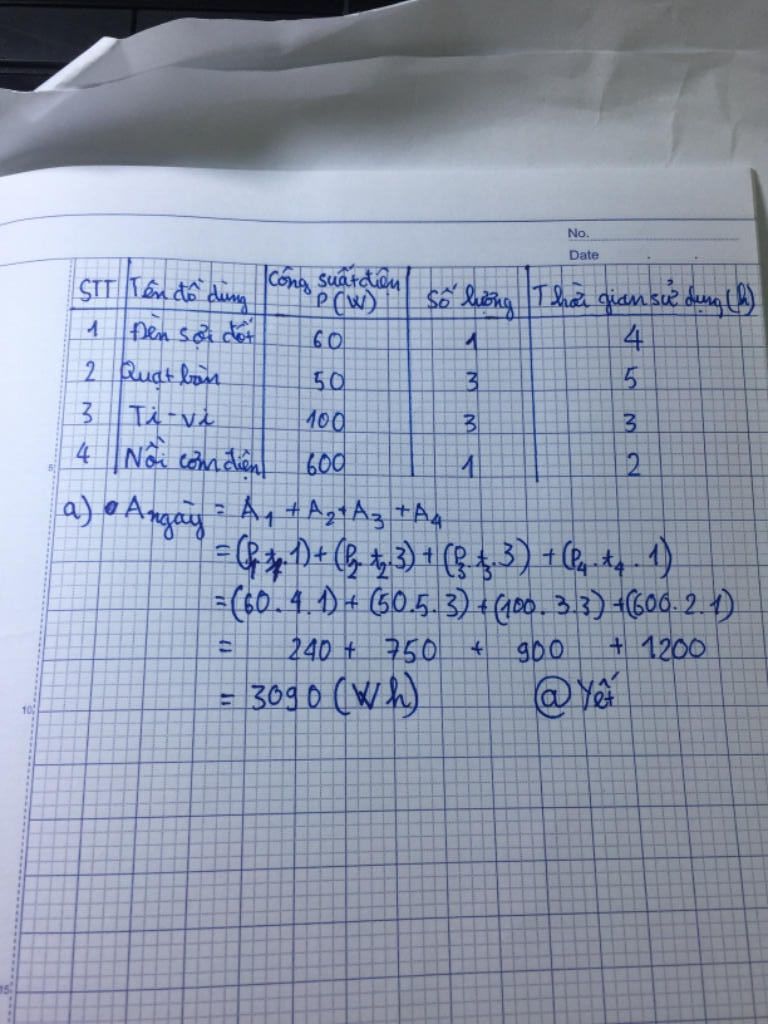 No.
Date
STT Tên đồ dùng Công suất điện P(W) Số lượng Thời gian sử dụng (h)
1 Đèn sợi đốt 60 1 4
2 Quạt bàn 50 3 5
3 Ti-vi 100 3 3
4 Nồi cơm điện 600 1 2
a) • A ngày = A1 + A2 + A3 + A4
= (P1.t1.1) + (P2.t2.3) + (P3.t3.3) + (P4.t4.1)
= (60.4.1) + (50.5.3) + (100.3.3) + (600.2.1)
= 240 + 750 + 900 + 1200
= 3090 (Wh) @ Yết
5
10
15